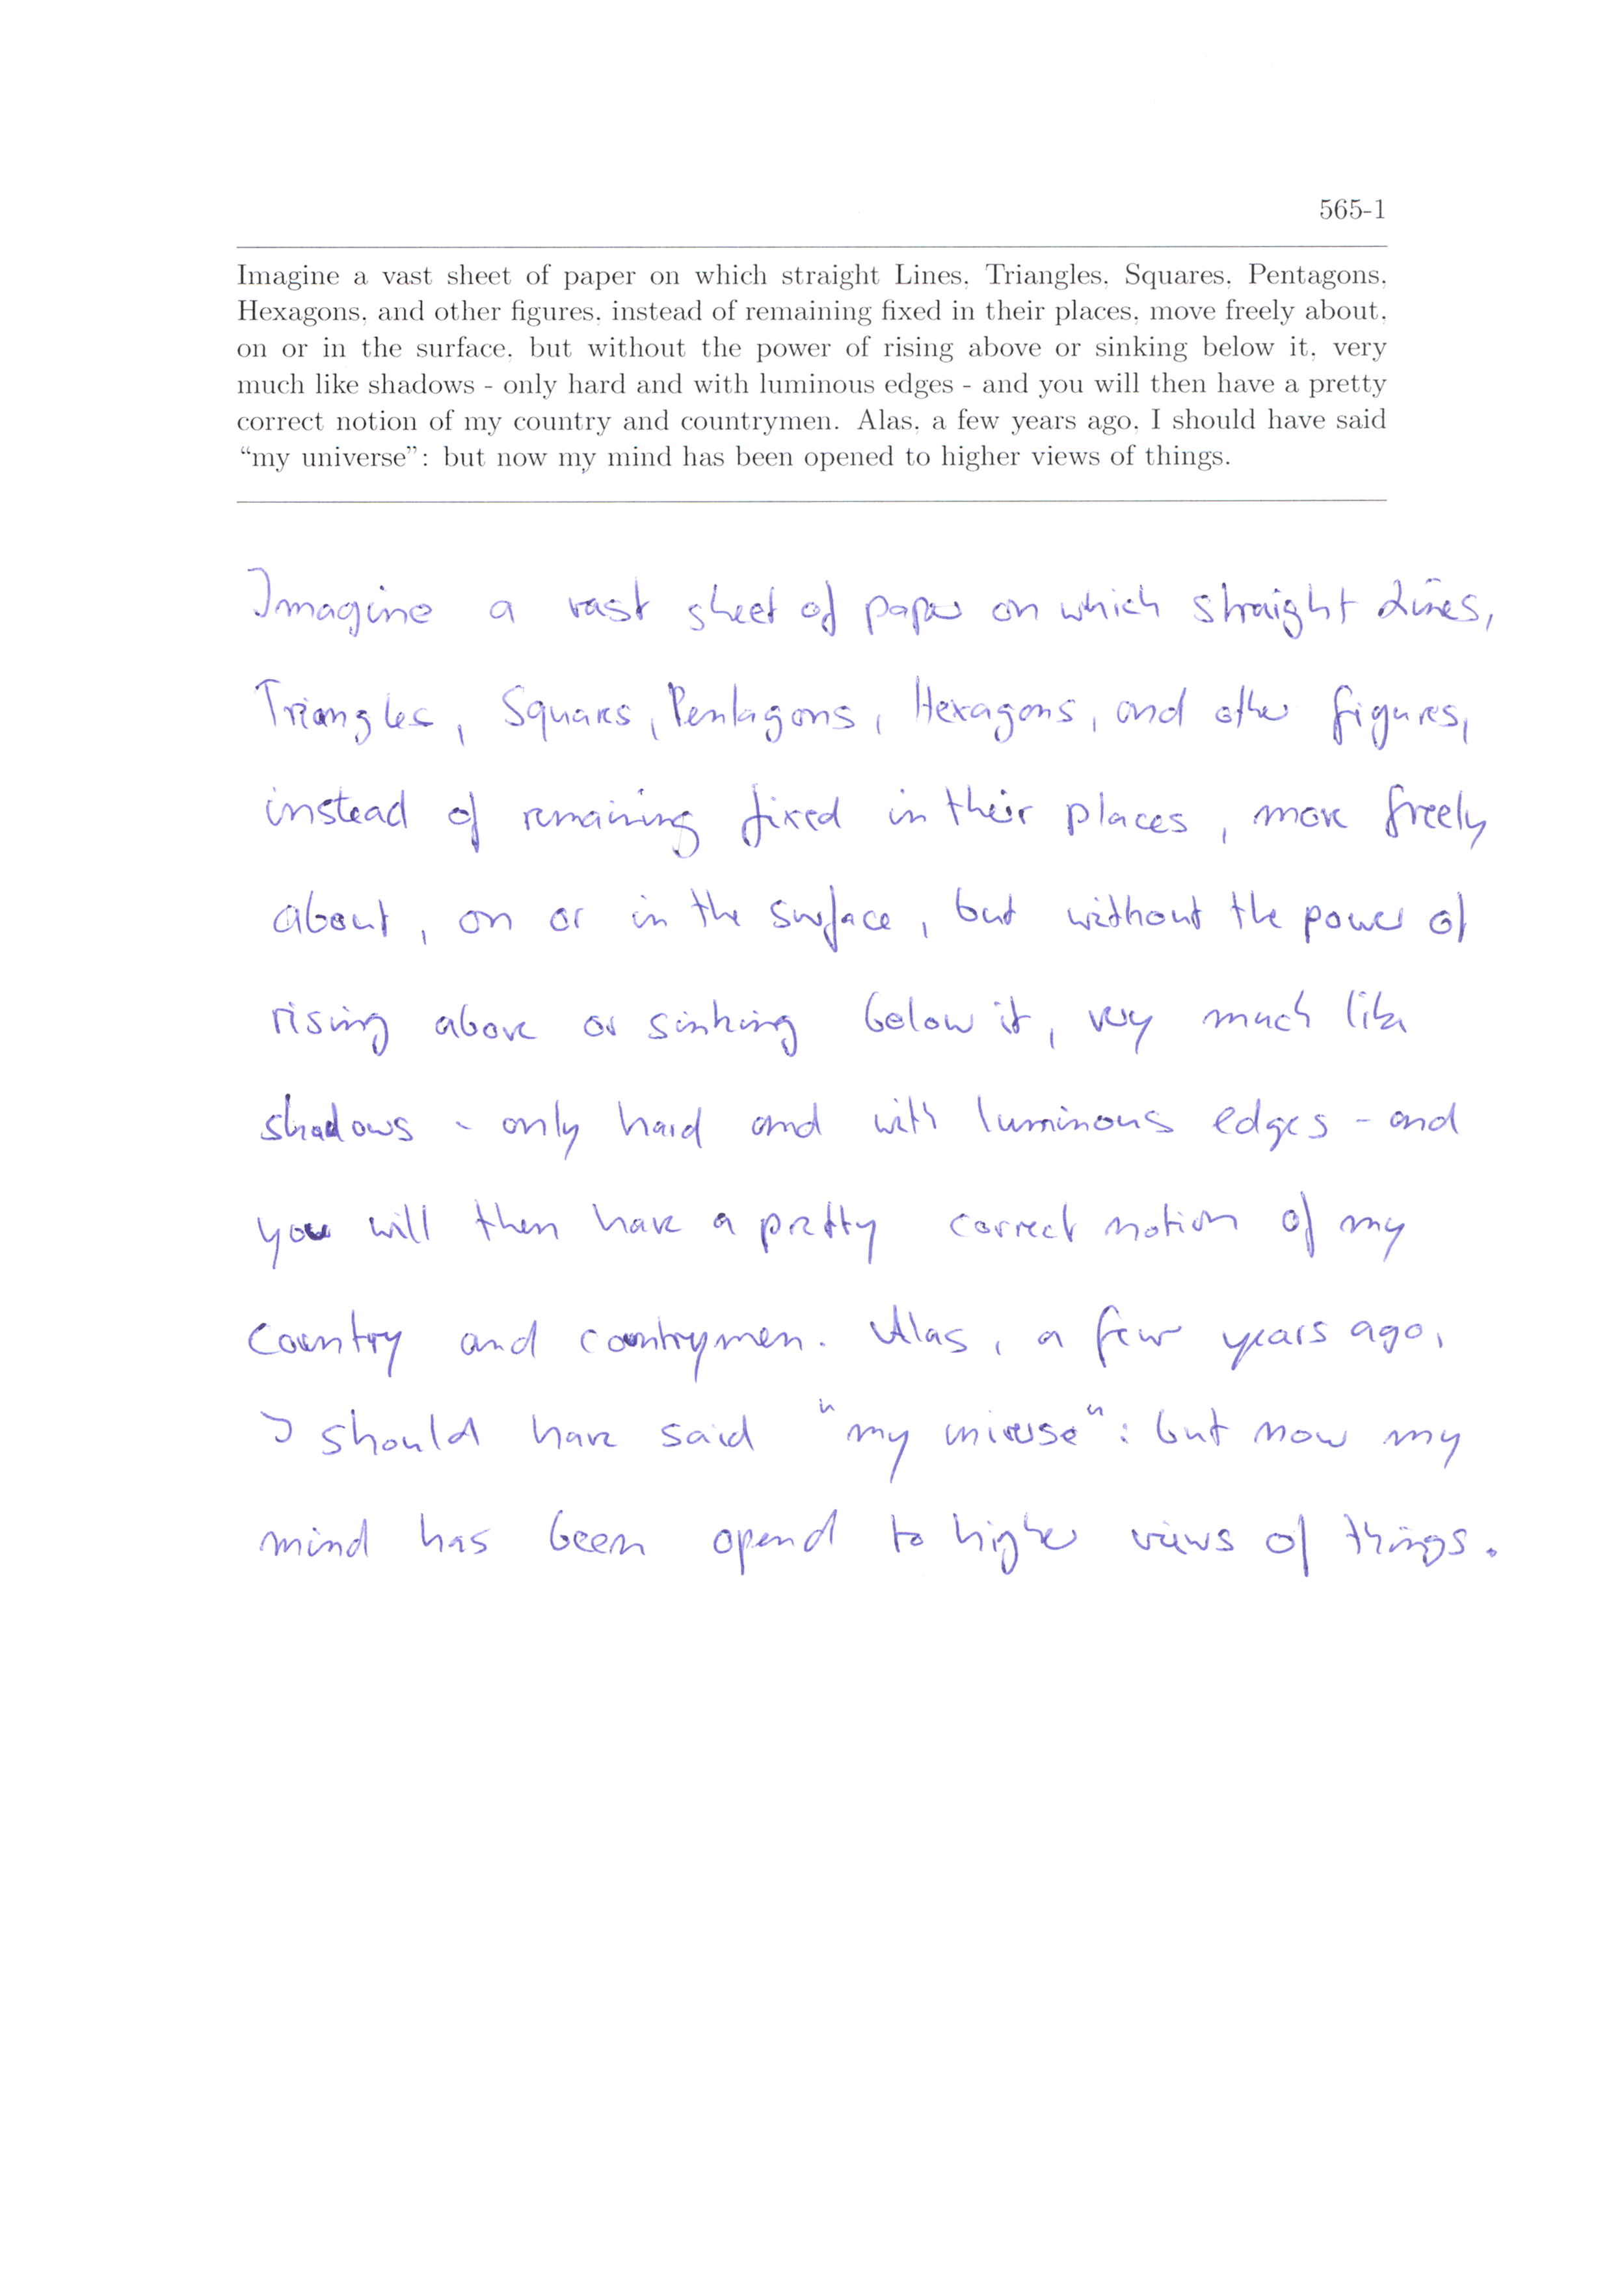 565-1
Imagine a vast sheet of paper on which straight Lines, Triangles, Squares, Pentagons,
Hexagons, and other figures, instead of remaining fixed in their places, move freely about,
on or in the surface, but without the power of rising above or sinking below it, very
much like shadows - only hard and with luminous edges - and you will then have a pretty
correct notion of my country and countrymen. Alas, a few years ago, I should have said
“my universe”: but now my mind has been opened to higher views of things.
Imagine a vast sheet of paper on which straight Lines,
Triangles, Squares, Pentagons, Hexagons, and other figures,
instead of remaining fixed in their places, move freely
about, on or in the surface, but without the power of
rising above or sinking below it, very much like
shadows - only hard and with luminous edges - and
you will then have a pretty correct notion of my
country and countrymen. Alas, a few years ago,
I should have said "my universe": but now my
mind has been opend to higher views of things.